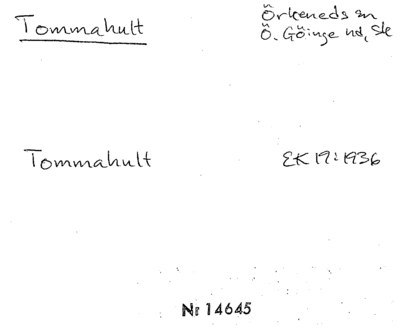 Tommahult
Örkeneds sn
Ö. Göinge hd, Sk
Tommahult
EK 19:1936
Nr 14645